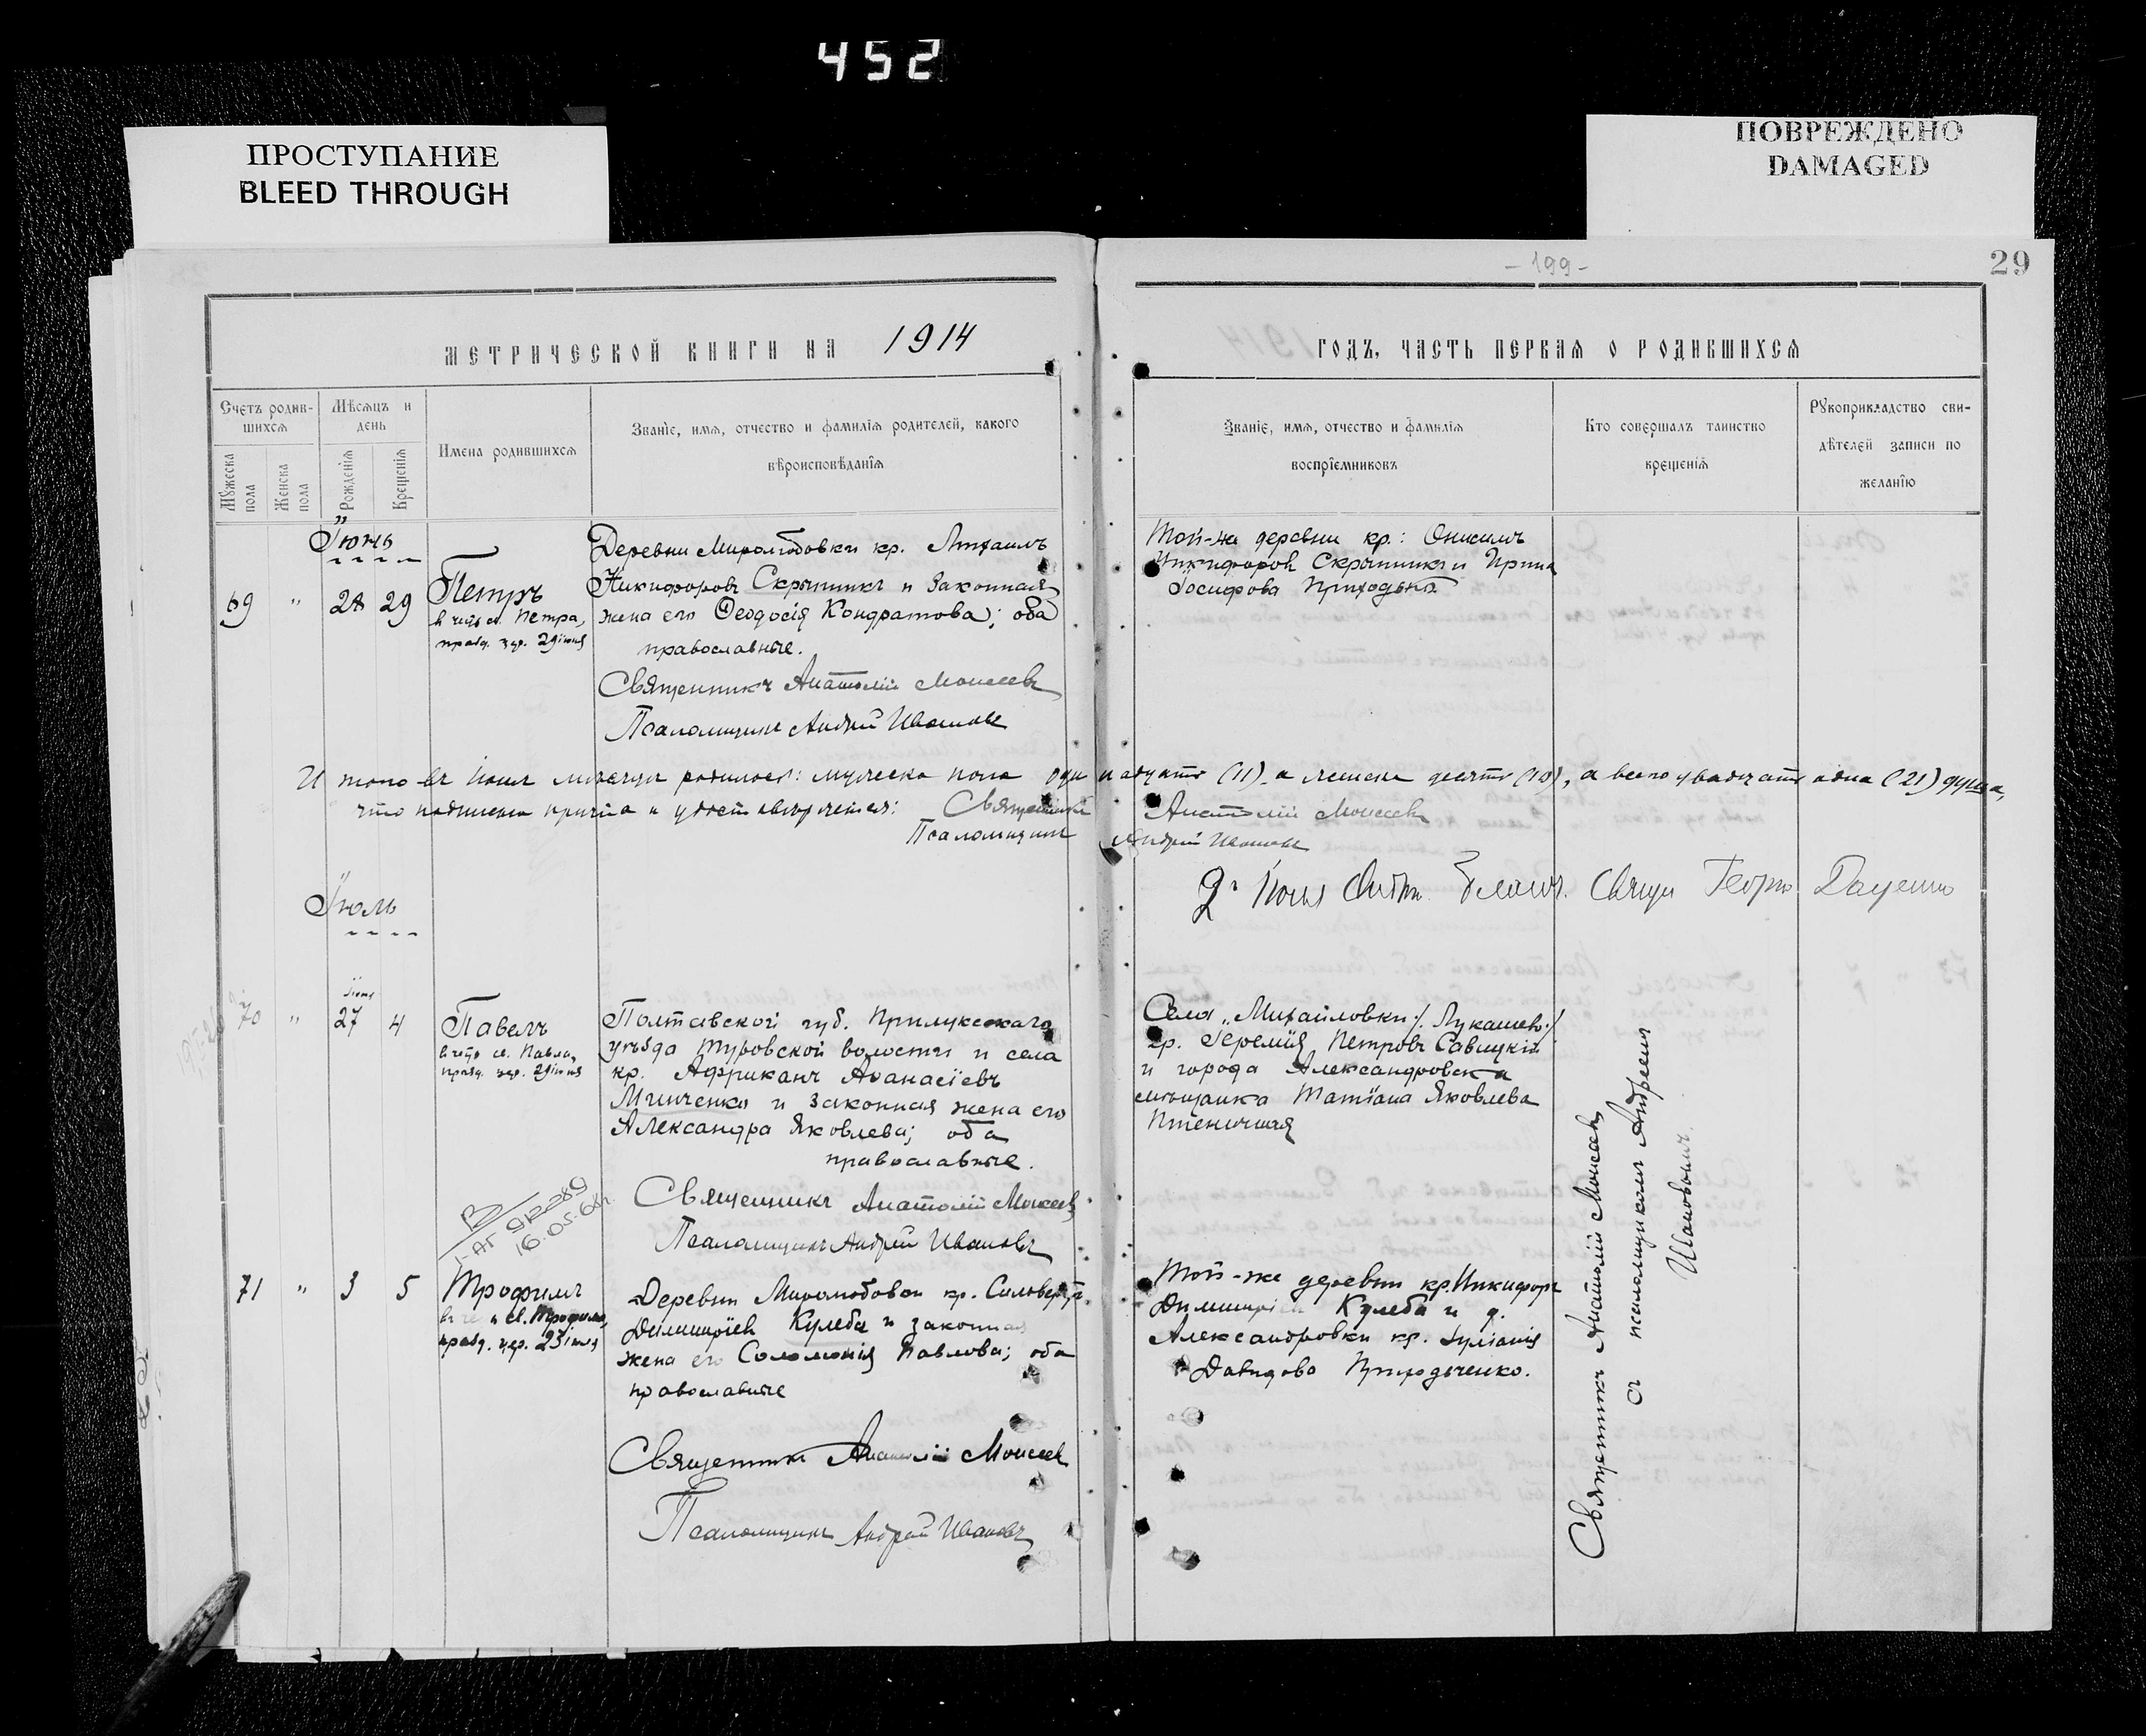 452
ПРОСТУПАНИЕ
BLEED THROUGH
ПОВРЕЖДЕНО
DAMAGED
- 199 -
29
МЕТРИЧЕСКОЙ КНИГИ НА 1914
ГОДЪ, ЧАСТЬ ПЕРВАЯ О РОДИВШИХСЯ
Счетъ родив-
шихся
Мужеска
пола
Женска
пола
Мѣсяцъ и
день
Рожденія
Крещенія
Имена родившихся
Званіе, имя, отчество и фамилія родителей, какого
вѣроисповѣданія
Званіе, имя, отчество и фамилія
воспріемниковъ
Кто совершалъ таинство
крещенія
Рукоприкладство сви-
дѣтелей записи по
желанію
Іюнь
69 " 28 29
Петръ
в честь св. Петра,
празд. цер. 29 іюня
Деревни Миролюбовки кр. Михаилъ
Никифоровъ Скрыпникъ и законная
жена его Ѳеодосія Кондратова; оба
православные.
Священникъ Анатолій Моисеевъ
Псаломщикъ Андрей Ивановъ
Той-же деревни кр.: Онисимъ
Никифоровъ Скрыпникъ и Ирина
Іосифова Приходько.
Итого въ Іюнѣ мѣсяцѣ родилось: мужеска пола одинадцать (11), а женска десять (10), а всего двадцать одна (21) душа,
что подписью причта и удостовѣряется: Священникъ Анатолій Моисеевъ
Псаломщикъ Андрей Ивановъ
Іюль
Свящ. Георгій Даценко
70 " іюня 27 4
Павелъ
в честь св. Павла,
празд. цер. 29 іюня
Полтавской губ. Прилукскаго
уѣзда Туровской волости и села
кр. Африканъ Аѳанасіевъ
Минченко и законная жена его
Александра Яковлева; оба
православные.
Священникъ Анатолій Моисеевъ
Псаломщикъ Андрей Ивановъ
Села Михайловки /Лукашев./
кр. Іеремія Петровъ Савицкій
и города Александровска
мѣщанка Татіана Яковлева
Пшеничная
912289
16.05.66г.
71 " 3 5
Трофимъ
въ че св. Трофима,
празд. цер. 23 іюля
Деревни Миролюбовки кр. Сильвестръ
Димитріевъ Кулеба и законная
жена его Соломонія Павлова; оба
православные
Священникъ Анатолій Моисеевъ
Псаломщикъ Андрей Ивановъ
Той-же деревни кр. Никифоръ
Димитріевъ Кулеба и д.
Александровки кр. Іуліанія
Давидова Приходченко.
Священникъ Анатолій Моисеевъ
съ псаломщикомъ Андреемъ
Ивановымъ.